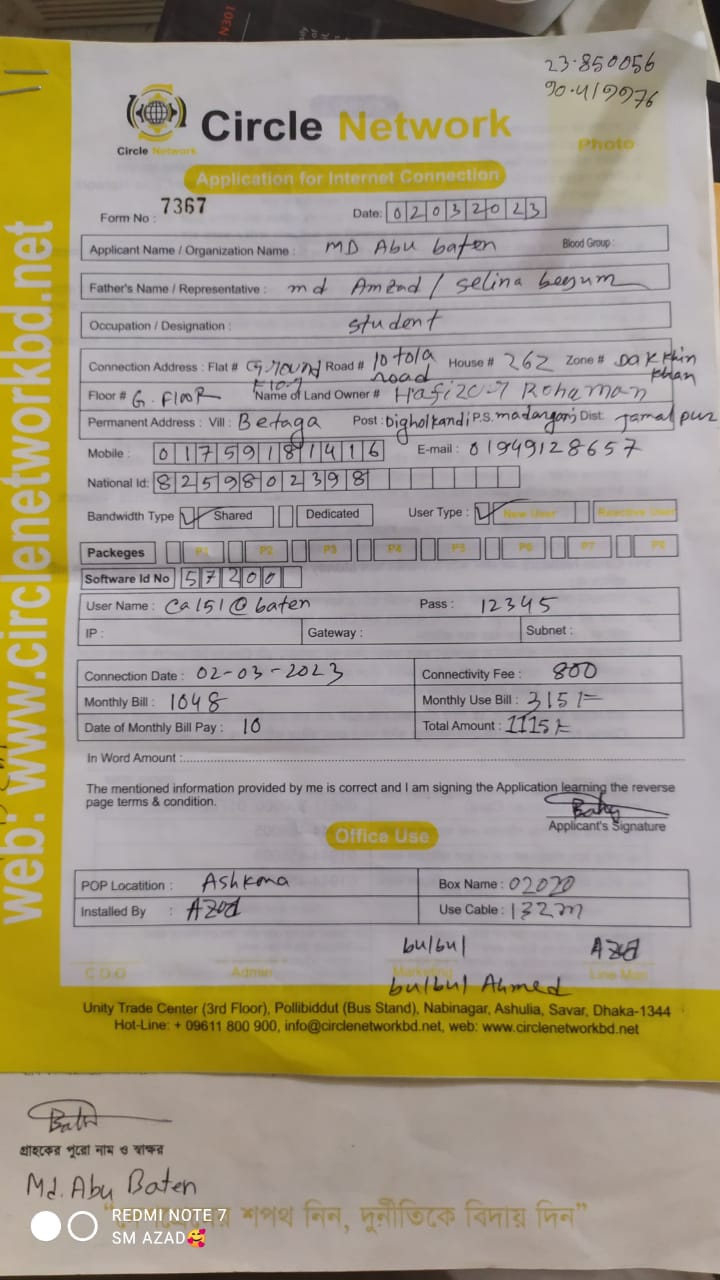 N301
23.850056
90.419976
Circle Network
Circle Network
Photo
Application for Internet Connection
Form No : 7367
Date: 02032023
Applicant Name / Organization Name : MD Abu baten Blood Group :
Father's Name / Representative : md Amzad / selina begum
Occupation / Designation : student
Connection Address : Flat # Ground Road # 10 tola road House # 262 Zone # Dakkhin khan
Floor # G. Floor Name of Land Owner # Hafizor Rohaman
Permanent Address : Vill : Betaga Post : Digholkandi P.S. madargonj Dist: Jamalpur
Mobile : 01759181416 E-mail : 01949128657
National Id: 8259802398
Bandwidth Type Shared Dedicated User Type : New User Reactive User
Packeges P1 P2 P3 P4 P5 P6 P7 P8
Software Id No 57200
User Name : Ca151@baten Pass : 12345
IP : Gateway : Subnet :
Connection Date : 02-03-2023 Connectivity Fee : 800
Monthly Bill : 1048 Monthly Use Bill : 315/=
Date of Monthly Bill Pay : 10 Total Amount : 1115/=
In Word Amount :
The mentioned information provided by me is correct and I am signing the Application learning the reverse
page terms & condition.
Applicant's Signature
Office Use
POP Locatition : Ashkona Box Name : 02020
Installed By : Azad Use Cable : 132m
bulbul Azad
C.O.O Admin Marketing Line Man
bulbul Ahmed
Unity Trade Center (3rd Floor), Pollibiddut (Bus Stand), Nabinagar, Ashulia, Savar, Dhaka-1344
Hot-Line: + 09611 800 900, info@circlenetworkbd.net, web: www.circlenetworkbd.net
web: www.circlenetworkbd.net
গ্রাহকের পুরো নাম ও স্বাক্ষর
Md. Abu Baten
শপথ নিন, দুর্নীতিকে বিদায় দিন”
REDMI NOTE 7
SM AZAD🥰